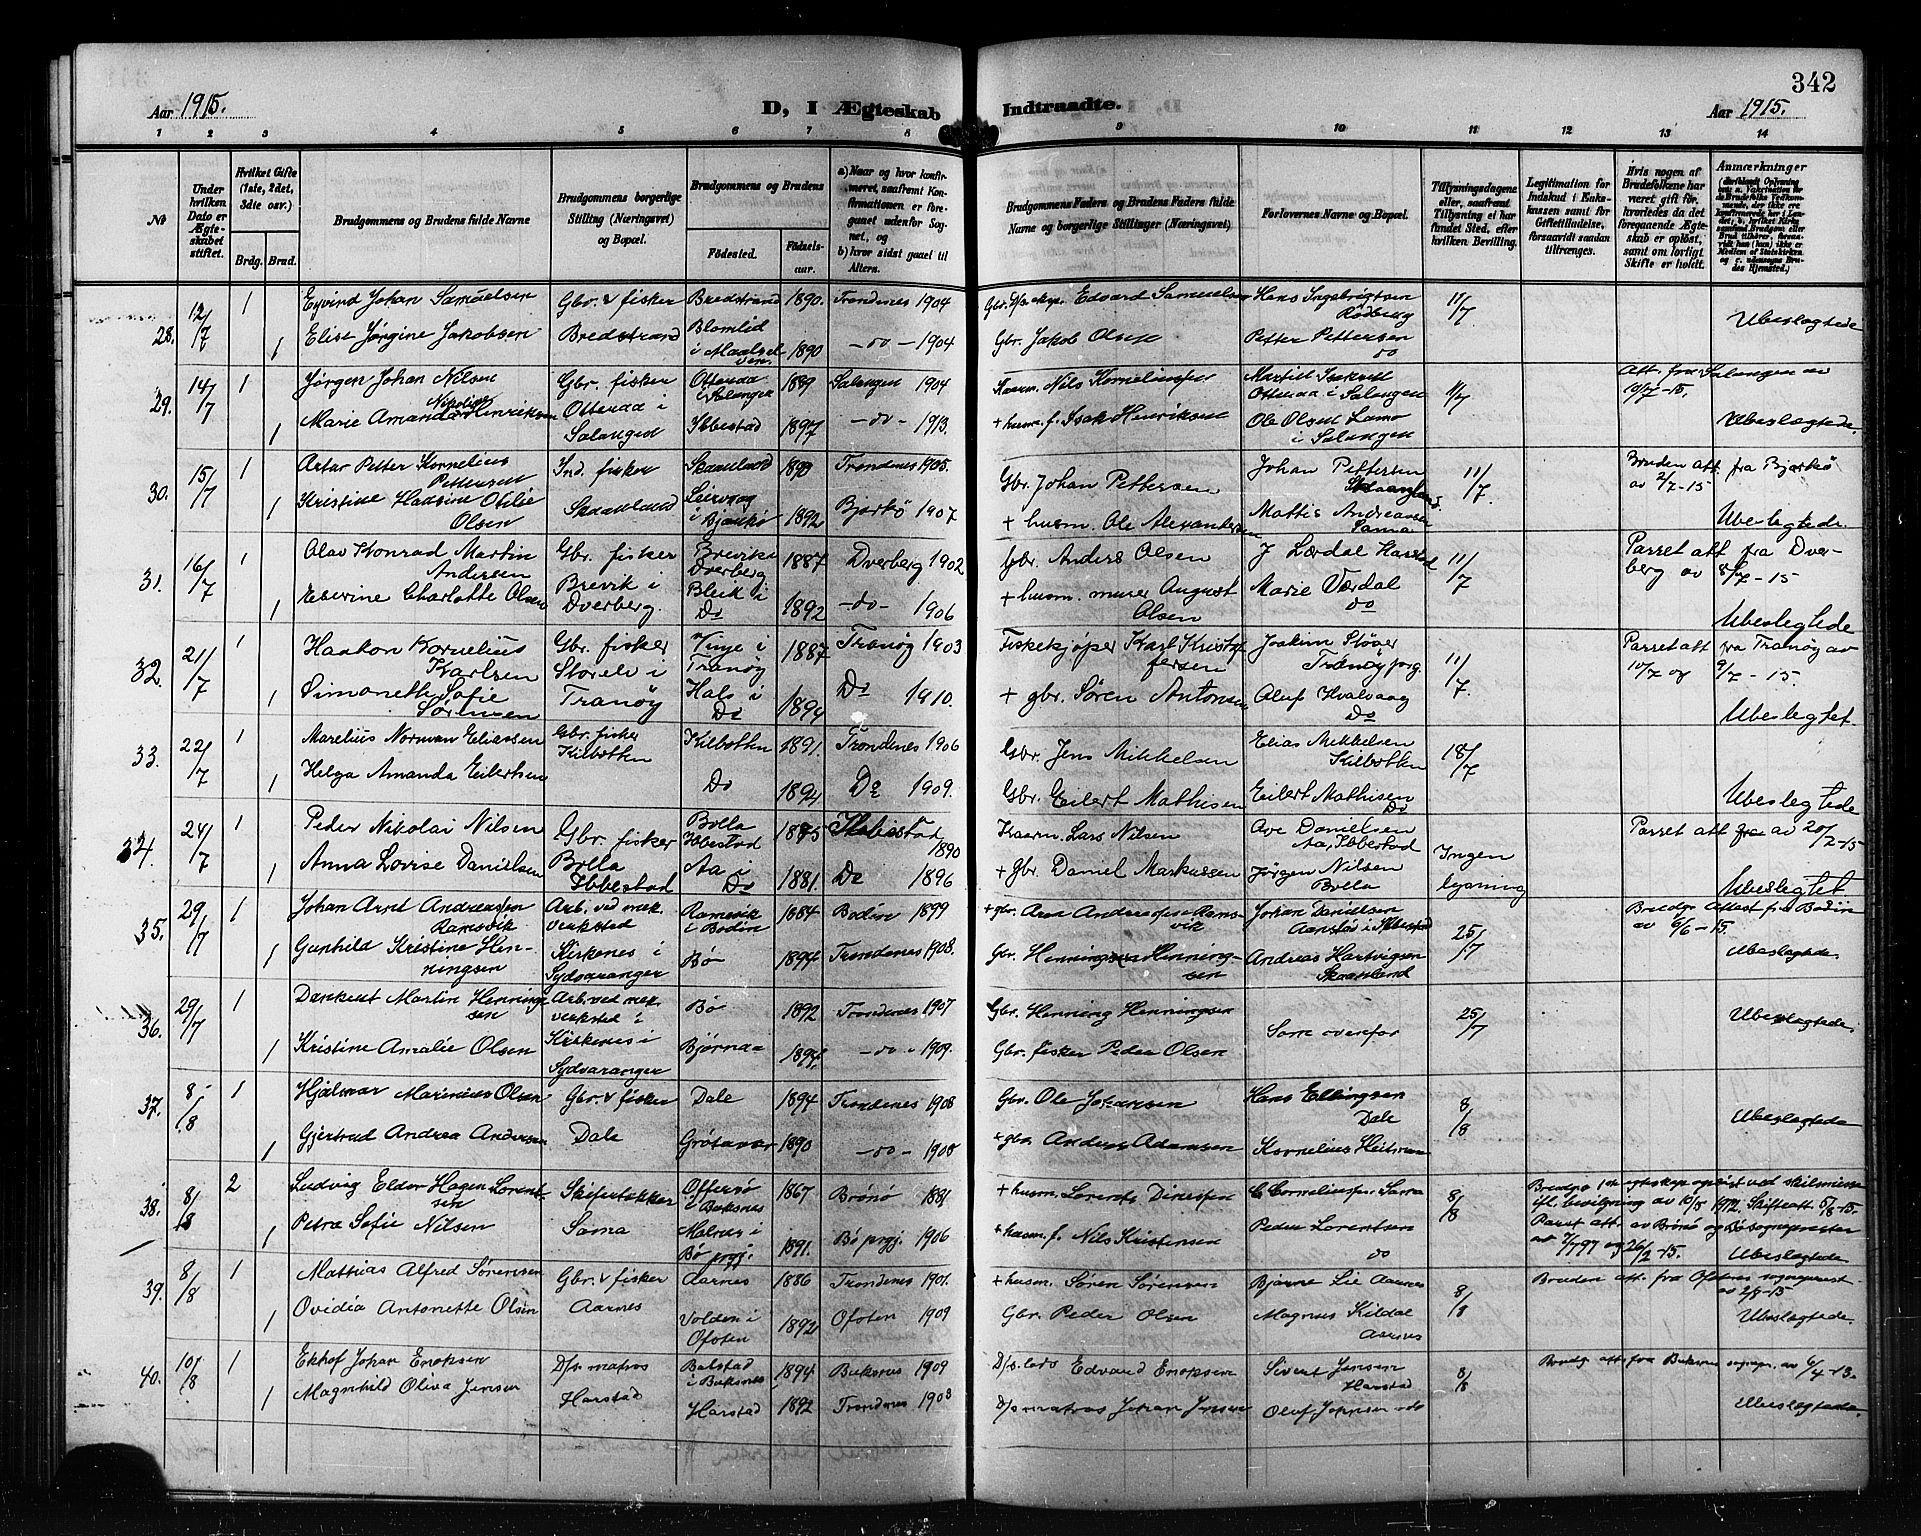 342
Aar 1915.
D, I Ægteskab Indtraadte.
Aar 1915.
1 2 3 4 5 6 7 8 9 10 11 12 13 14
No
Under hvilken Dato er Ægteskabet stiftet.
Hvilket Gifte (1ste, 2det, 3die osv.)
Brdg. Brud.
Brudgommens og Brudens fulde Navne
Brudgommens borgerlige Stilling (Næringsvei) og Bopæl.
Brudgommens og Brudens
Fødested.
Fødselsaar.
a) Naar og hvor konfirmeret, saafremt Konfirmationen er foregaaet udenfor Sognet, og
b) hvor sidst gaaet til Alters.
Brudgommens Faders og Brudens Faders fulde Navne og borgerlige Stillinger (Næringsvei)
Forlovernes Navne og Bopæl.
Tillysningsdagene eller, saafremt Tillysning ei har fundet Sted, efter hvilken Bevilling.
Legitimation for Indskud i Enkekassen samt for Giftetilladelse, forsaavidt saadan tiltrænges.
Hvis nogen af Brudefolkene har været gift før, hvorledes da det foregaaende Ægteskab er opløst, samt om lovligt Skifte er holdt.
Anmærkninger
28. 12/7 1 Eyvind Johan Samuelsen Gbr. & fisker Bredstrand 1890. Trondenes 1904 Edvard Samuelsen Hans Ingebrigtsen Rødberg 11/7
1 Elise Jørgine Jakobsen Bredstrand Blomlid i Maalselven 1890 -do- 1904 Gbr. Jakob Olsen Petter Pettersen do Ubeslægtede
29. 14/7 1 Jørgen Johan Nilsen Gbr. fisker Otteraa i Salangen 1889 Salangen 1904 Nils Korneliussen Otteraa i Salangen 11/7 Att. fra Salangen av 10/7-15.
1 Marie Amanda Nikoline Henriksen Otteraa i Salangen Ibbestad 1897 -do- 1913. + husm. f. Isak Henriksen Ole Olsen i Salangen Ubeslægtede.
30. 15/7 1 Petter Kornelius Pettersen Ind. fisker Skaanland Trondenes 1905. Gbr. Johan Pettersen Johan Pettersen Skaanland 11/7. Bruden att. fra Bjarkö av 2/7-15
1 Kristine Otilie Olsen Skaanland i Bjarkö 1892 Bjarkö 1907 + husm. Ole Alexandersen Mattis Andreassen Sama Ubeslegtede.
31. 16/7 1 Olav Konrad Martin Andersen Gbr. fisker Brevik i Dverberg 1887 Dverberg 1902 Gbr. Anders Olsen J Lærdal Harstad 11/7 Parret att. fra Dverberg av 8/7-15
1 Charlotte Olsen Brevik i Dverberg. Bleik i Do 1892 -do- 1906 + husm. murer August Olsen Marie Do Ubeslegtede
32. 21/7 1 Haakon Kornelius Karlsen Gbr. fisker Vinje i Tranöy 1887 Tranöy 1903 Fiskekjøper Karl Kristoffersen Joakim Støver Tranöy prg. 11/7. Parret att fra Tranöy av 10/7 og 9/7-15.
1 Simoneth Sofie Sørensen Tranöy Hals i Do 1894 Do 1910. + gbr. Søren Antonsen Aluf Kvalvaag Do Ubeslegtet.
33. 22/7 1 Marelius Norman Eliassen Gbr. fisker Kilbothn Kilbothn 1891. Trondenes 1906 Gbr. Jens Mikkelsen Elias Mikkelsen Kilbothn 18/7
1 Helga Amanda Eilertsen Do 1894 Do 1909. Gbr. Eilert Mathisen Eilert Mathisen Do Ubeslegtede
34. 24/7 1 Peder Nikolai Nilsen Gbr. fisker Bolla Ibbestad 1875 Ibbestad 1890 Kaarm. Lars Nilsen Ove Danielsen Aa, Ibbestad Ingen lysning Parret att av 20/7-15
1 Anna Lovise Danielsen Bolla Ibbestad Aa i Do 1881. Do 1896 + gbr. Daniel Markussen Jørgen Nilsen Bolla Ubeslegtet
35. 29/7 1 Johan Arnt Andreassen Ramsvik Arb. ved mek. verksted Ramsvik i Bodin 1884 Bodin 1899 + gbr. Andreassen Ramsvik Johan Danielsen Aanstad i Ibbestad 25/7 Brudgr. Attest fra Bodin av 6/6-15.
1 Gunhild Kristine Henningsen Kirkenes i Sydvaranger Bø 1894 Trondenes 1908. Gbr. Henning Henningsen Andreas Hartvigsen Skaanland Ubeslægtede.
36. 29/7 1 Martin Henningsen Arb. ved mek. verksted i Bø 1892 Trondenes 1907 Gbr. Henning Henningsen Som ovenfor 25/7 Ubeslægtede.
1 Kristine Amalie Olsen Kirkenes i Sydvaranger Bjørnaa 1894. -do- 1909. Gbr. fisker Peder Olsen
37. 8/8 1 Hjalmar Marinius Olsen Gbr. & fisker Dale 1894 Trondenes 1908 Gbr. Ole Johansen Hans Ellingsen Dale 8/8 Ubeslægtede
1 Gjertrud Andrea Andersen Dale Grøtavær 1890 -do- 1908 + gbr. Anders Adamsen Kornelius
38. 8/8 2 Ludvig Eldor Hagen Lorentsen Skifertækker Offersö i Buksnes 1867 Brönö 1881 + husm. Lorents C Corneliussen Sama 8/8 Brudgs 1ste egteskap opløst ved skilsmisse ifl. bevilgning av 15/5 1912. Skifteatt. 5/8-15.
1 Petra Sofie Nilsen Sama Malnes i Bø prgj. 1891. Bø prgj. 1906 + husm. f. Nils Kristensen Peder Lorentsen do Parret att. av Brönö og Bø sogneprester av 7/7 97 og 26/2-15. Ubeslægtede
39. 8/8 1 Mathias Alfred Sörensen Gbr. & fisker Aarnes 1886 Trondenes 1901. + husm. Søren Sørensen Bjarne Lie Aarnes 8/8 Bruden att. fra Ofotens sogneprest av 2/8-15
1 Ovidia Antonette Olsen Aarnes Volden i Ofoten 1892 Ofoten 1909 Gbr. Peder Olsen Magnus Kildal Aarnes Ubeslægtede.
40. 10/8 1 Ekhof Johan Enoksen D/s. matros Balstad i Buksnes 1894 Buksnes 1909 D/s. lods Edvard Enoksen Sivert Jensen Harstad 8/8 Brudg. att. fra Buksnes sognepr. av 6/4-15.
1 Magnhild Oliva Jensen Harstad Harstad 1892 Trondenes 1908 D/s matros Johan Jensen Oluf Jeppesen do Ubeslægtede.